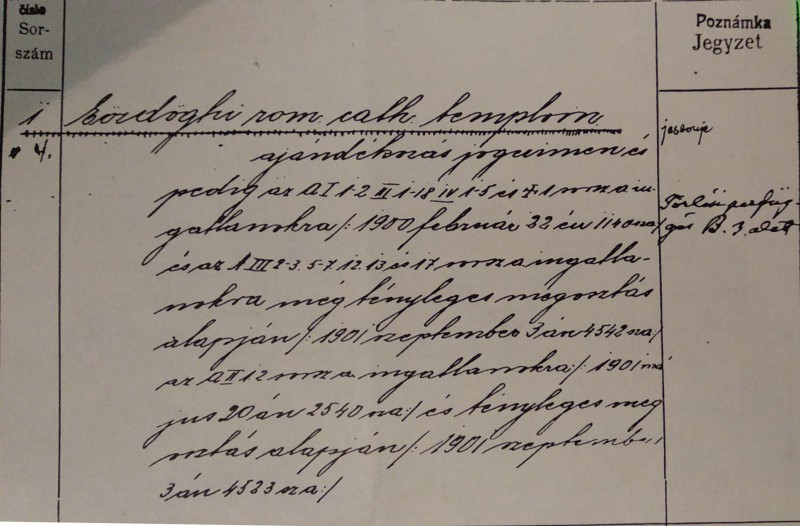 čislo
Sor-
szám
Poznámka
Jegyzet
1 rom. cath. templom
4.
ajándékozás jogcimen és
pedig az A I 1-2 III 1-18 IV 1-5 és 1 sorsz a in-
gatlanokra /: 1900 február 22 én 1140 sz :/
és az A III 2-3. 5-7. 12. 13 és 17 sorsz a ingatla-
nokra még tényleges megosztás
alapján /: 1901 szeptember 3án 4542 sz :/
az A II 1 2 sorsz a. ingatlanokra /: 1901 má
jus 20án 2540 sz :/ és tényleges meg
osztás alapján /: 1901 szeptember
3án 4523 sz :/
Törlési perfüg-
gés B. 3. alatt